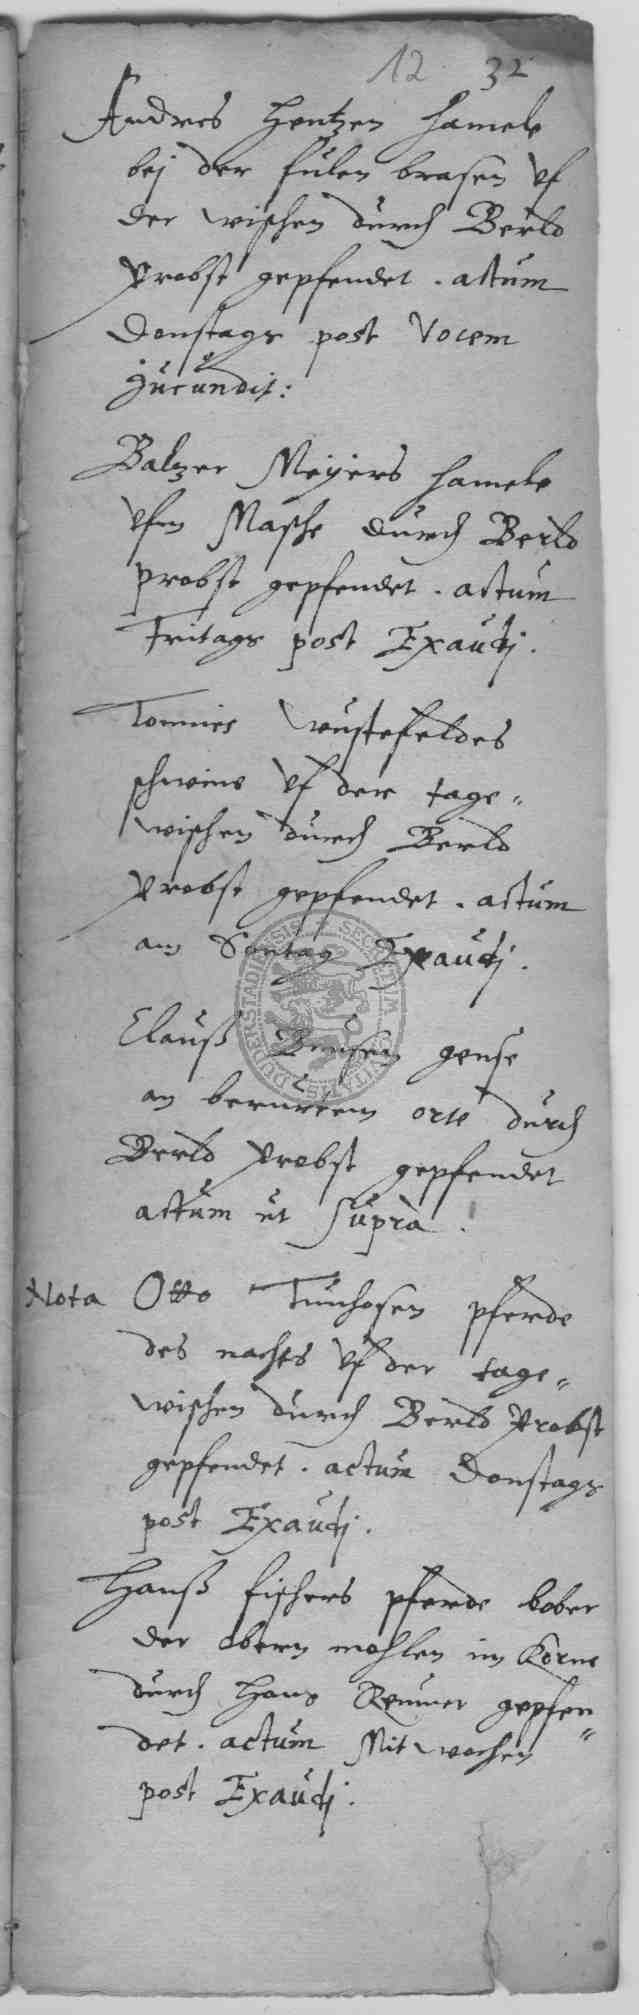 12 32
Andres Hentzen hamele
bej der fulen brasen vf
der wischen durch Berld
Probst gepfendet. actum
Donstags post Vocem
Jucundit:
Baltzer Meyers hamele
vfm Masche durch Berld
probst gepfendet. actum
Fritags post Exaudj.
Tonnies Wustefeldes
schweine vf der tage-
wischen durch Berld
Probst gepfendet. actum
am Sontag Exaudj.
Clauß gense
an berurtem orte durch
Berld Probst gepfendet
actum ut supra.
Nota Otto Tunhosen pferde
des nachts vf der tage-
wischen durch Berld Probst
gepfendet. actum Donstags
post Exaudj.
Hanß fischers pferde bober
der obern mohlen im Korne
durch Hans gepfen-
det. actum Mitwochen
post Exaudj.